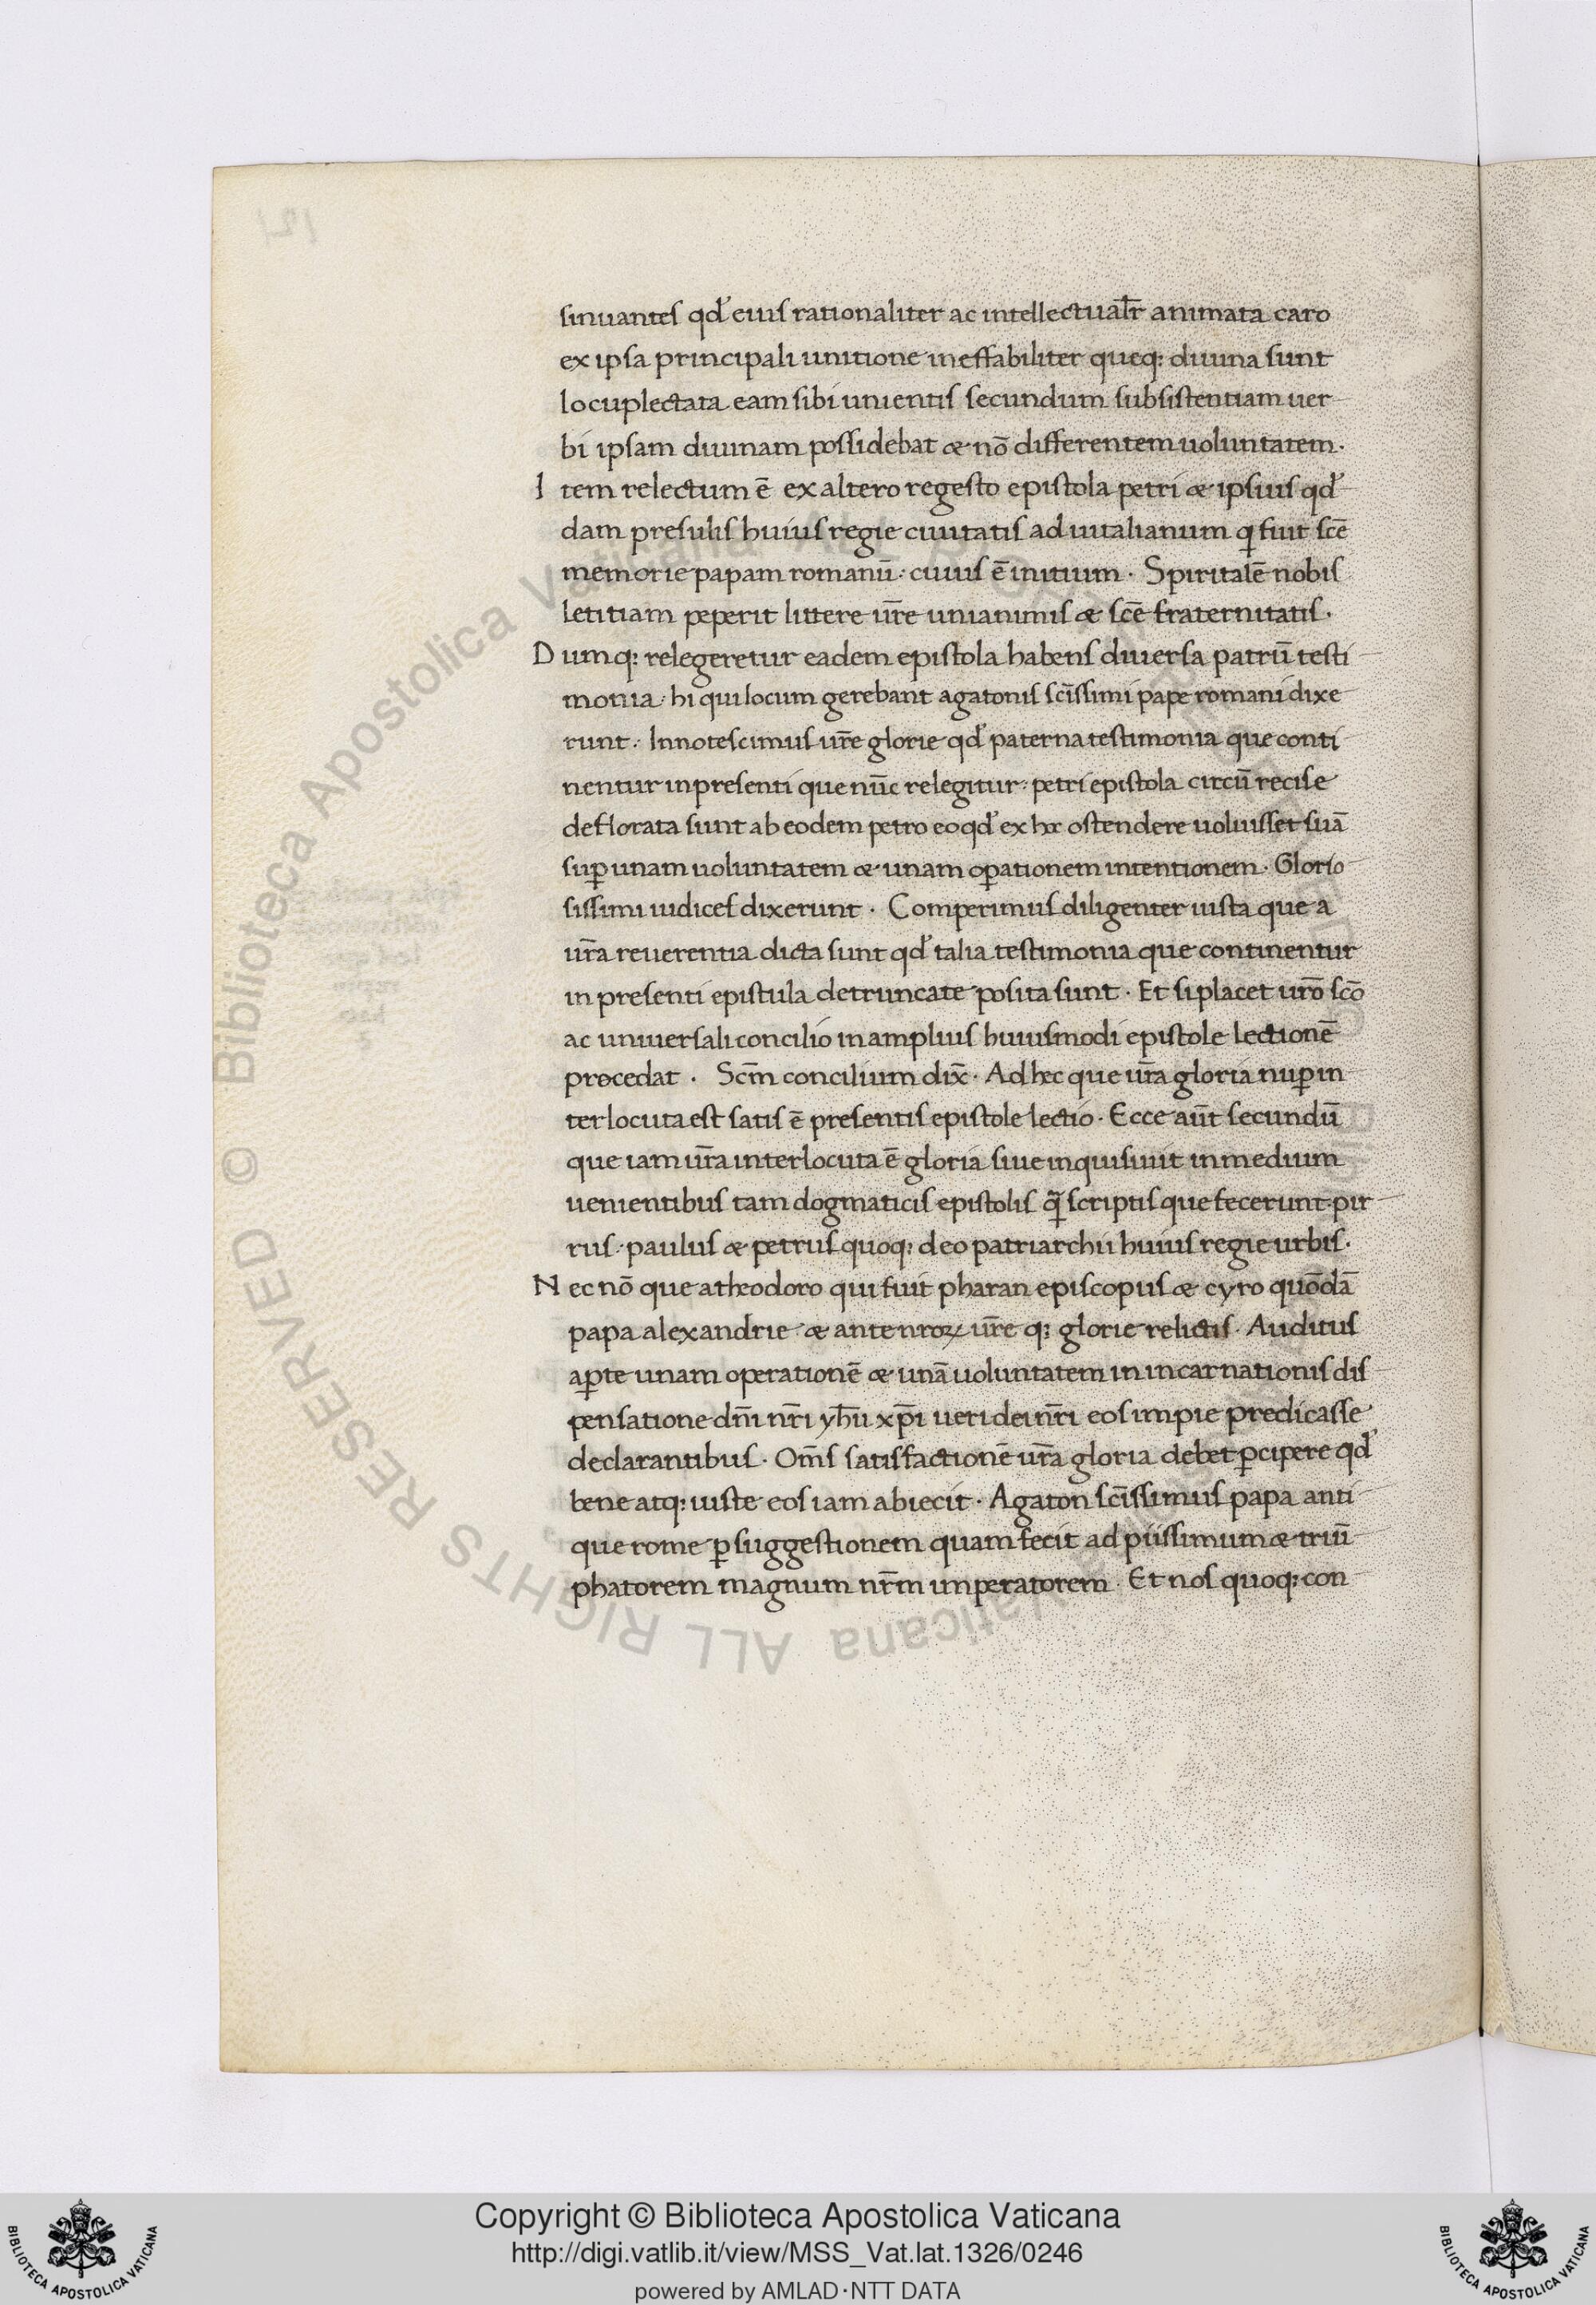 sinuantes qd̛ eius rationaliter ac intellectualr̄ animata caro
ex ipsa principali unitione ineffabiliter queq; diuina sunt
locuplectata eam sibi unientis secundum subsistentiam uer
bi ipsam diuinam possidebat & nō differentem uoluntatem.
I tem relectum ē ex altero regesto epistola petri & ipsius qd̛
dam presulis huius regie ciuitatis ad uitalianum q̄ fuit scē
memorie papam romanū: cuius ē initium. Spiritalē nobis
letitiam peperit littere ur̄e unianimis & scē fraternitatis.
D umq; relegeretur eadem epistola habens diuersa patrū testi
monia: hi qui locum gerebant agatonis sc̄issimi pape romani dixe
runt. Innotescimus ur̄e glorie qd̛ paterna testimonia que conti
nentur in presenti que nūc relegitur: petri epistola circū recise
deflorata sunt ab eodem petro eo qd̛ ex hoc ostendere uoluisset suā
sup̄ unam uoluntatem & unam op̄ationem intentionem. Glorio
sissimi iudices dixerunt. Comperimus diligenter iusta que a
ur̄a reuerentia dicta sunt qd̛ talia testimonia que continentur
in presenti epistula detruncate posita sunt. Et si placet ur̄o scō
ac uniuersali concilio in amplius huiusmodi epistole lectionē
procedat. Scm̄ concilium dix̄. Ad hec que ur̄a gloria nup̄ in
terlocuta est satis ē presentis epistole lectio. Ecce aūt secundū
que iam ur̄a interlocuta ē gloria siue inquisiuit in medium
uenientibus tam dogmaticis epistolis q̄ scriptis que fecerunt pir
rus: paulus & petrus quoq; deo patriarchii huius regie urbis.
N ec nō que a theodoro qui fuit pharan episcopus & cyro quōdā
papa alexandrie & ante nroꝝ ur̄e q; glorie relictis. Auditus
ap̄te unam operationē & unā uoluntatem in incarnationis dis
pensatione dn̄i nr̄i yhū xp̄i ueri dei nr̄i eos impie predicasse
declarantibus. Om̄s satisfactionē ur̄a gloria debet p̄cipere qd̛
bene atq; iuste eos iam abiecit. Agaton sc̄issimus papa anti
que rome p̄ suggestionem quam fecit ad piissimum & triū
phatorem magnum nr̄m imperatorem. Et nos quoq; con
© Biblioteca Apostolica Vaticana ALL RIGHTS RESERVED
Copyright © Biblioteca Apostolica Vaticana
http://digi.vatlib.it/view/MSS_Vat.lat.1326/0246
powered by AMLAD·NTT DATA
BIBLIOTECA APOSTOLICA VATICANA
BIBLIOTECA APOSTOLICA VATICANA